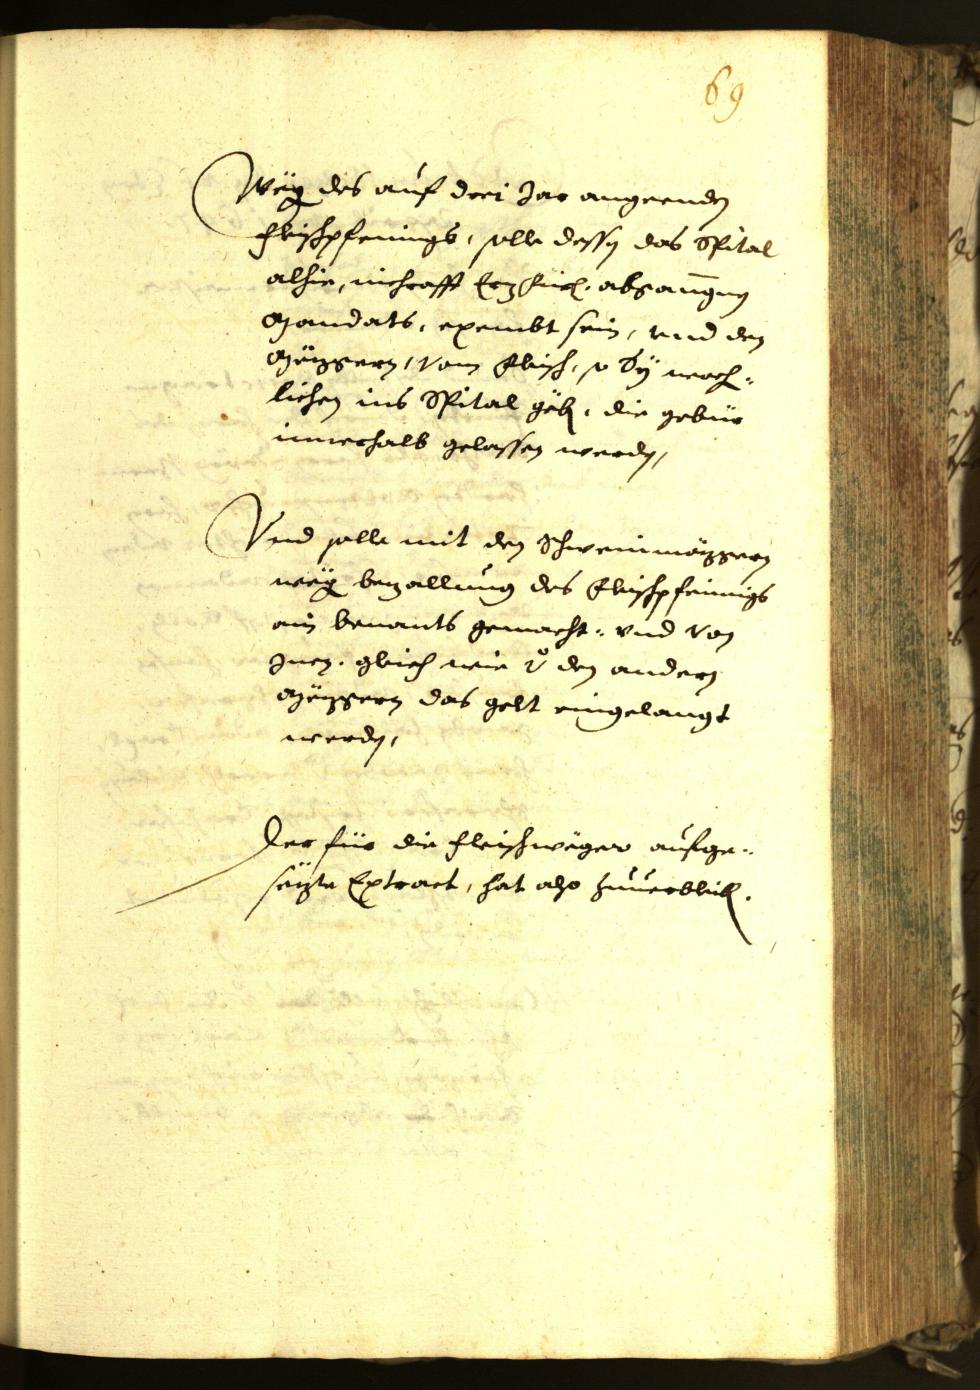 69
Weg des auf drei Jar angeenden
fleischpfenings, solle dessen das Spital
alhie, inchrafft Erzfürl. abganngnen
Mandats, exembt sein, vnd den
Mezgern, vom fleisch, so Sy wech-
lichen ins Spital geben, die gebür
innerhalb gelassen werden,
Vnd solle mit den Schweinmezgern
weg bezallung des fleischpfenings
ain benants gemacht, vnd von
Inen, gleich wie den andern
Mezgern das gelt eingelangt
werden,
Der für die fleischweger aufge-
sezte Extract, hat also zuuerbleiben.